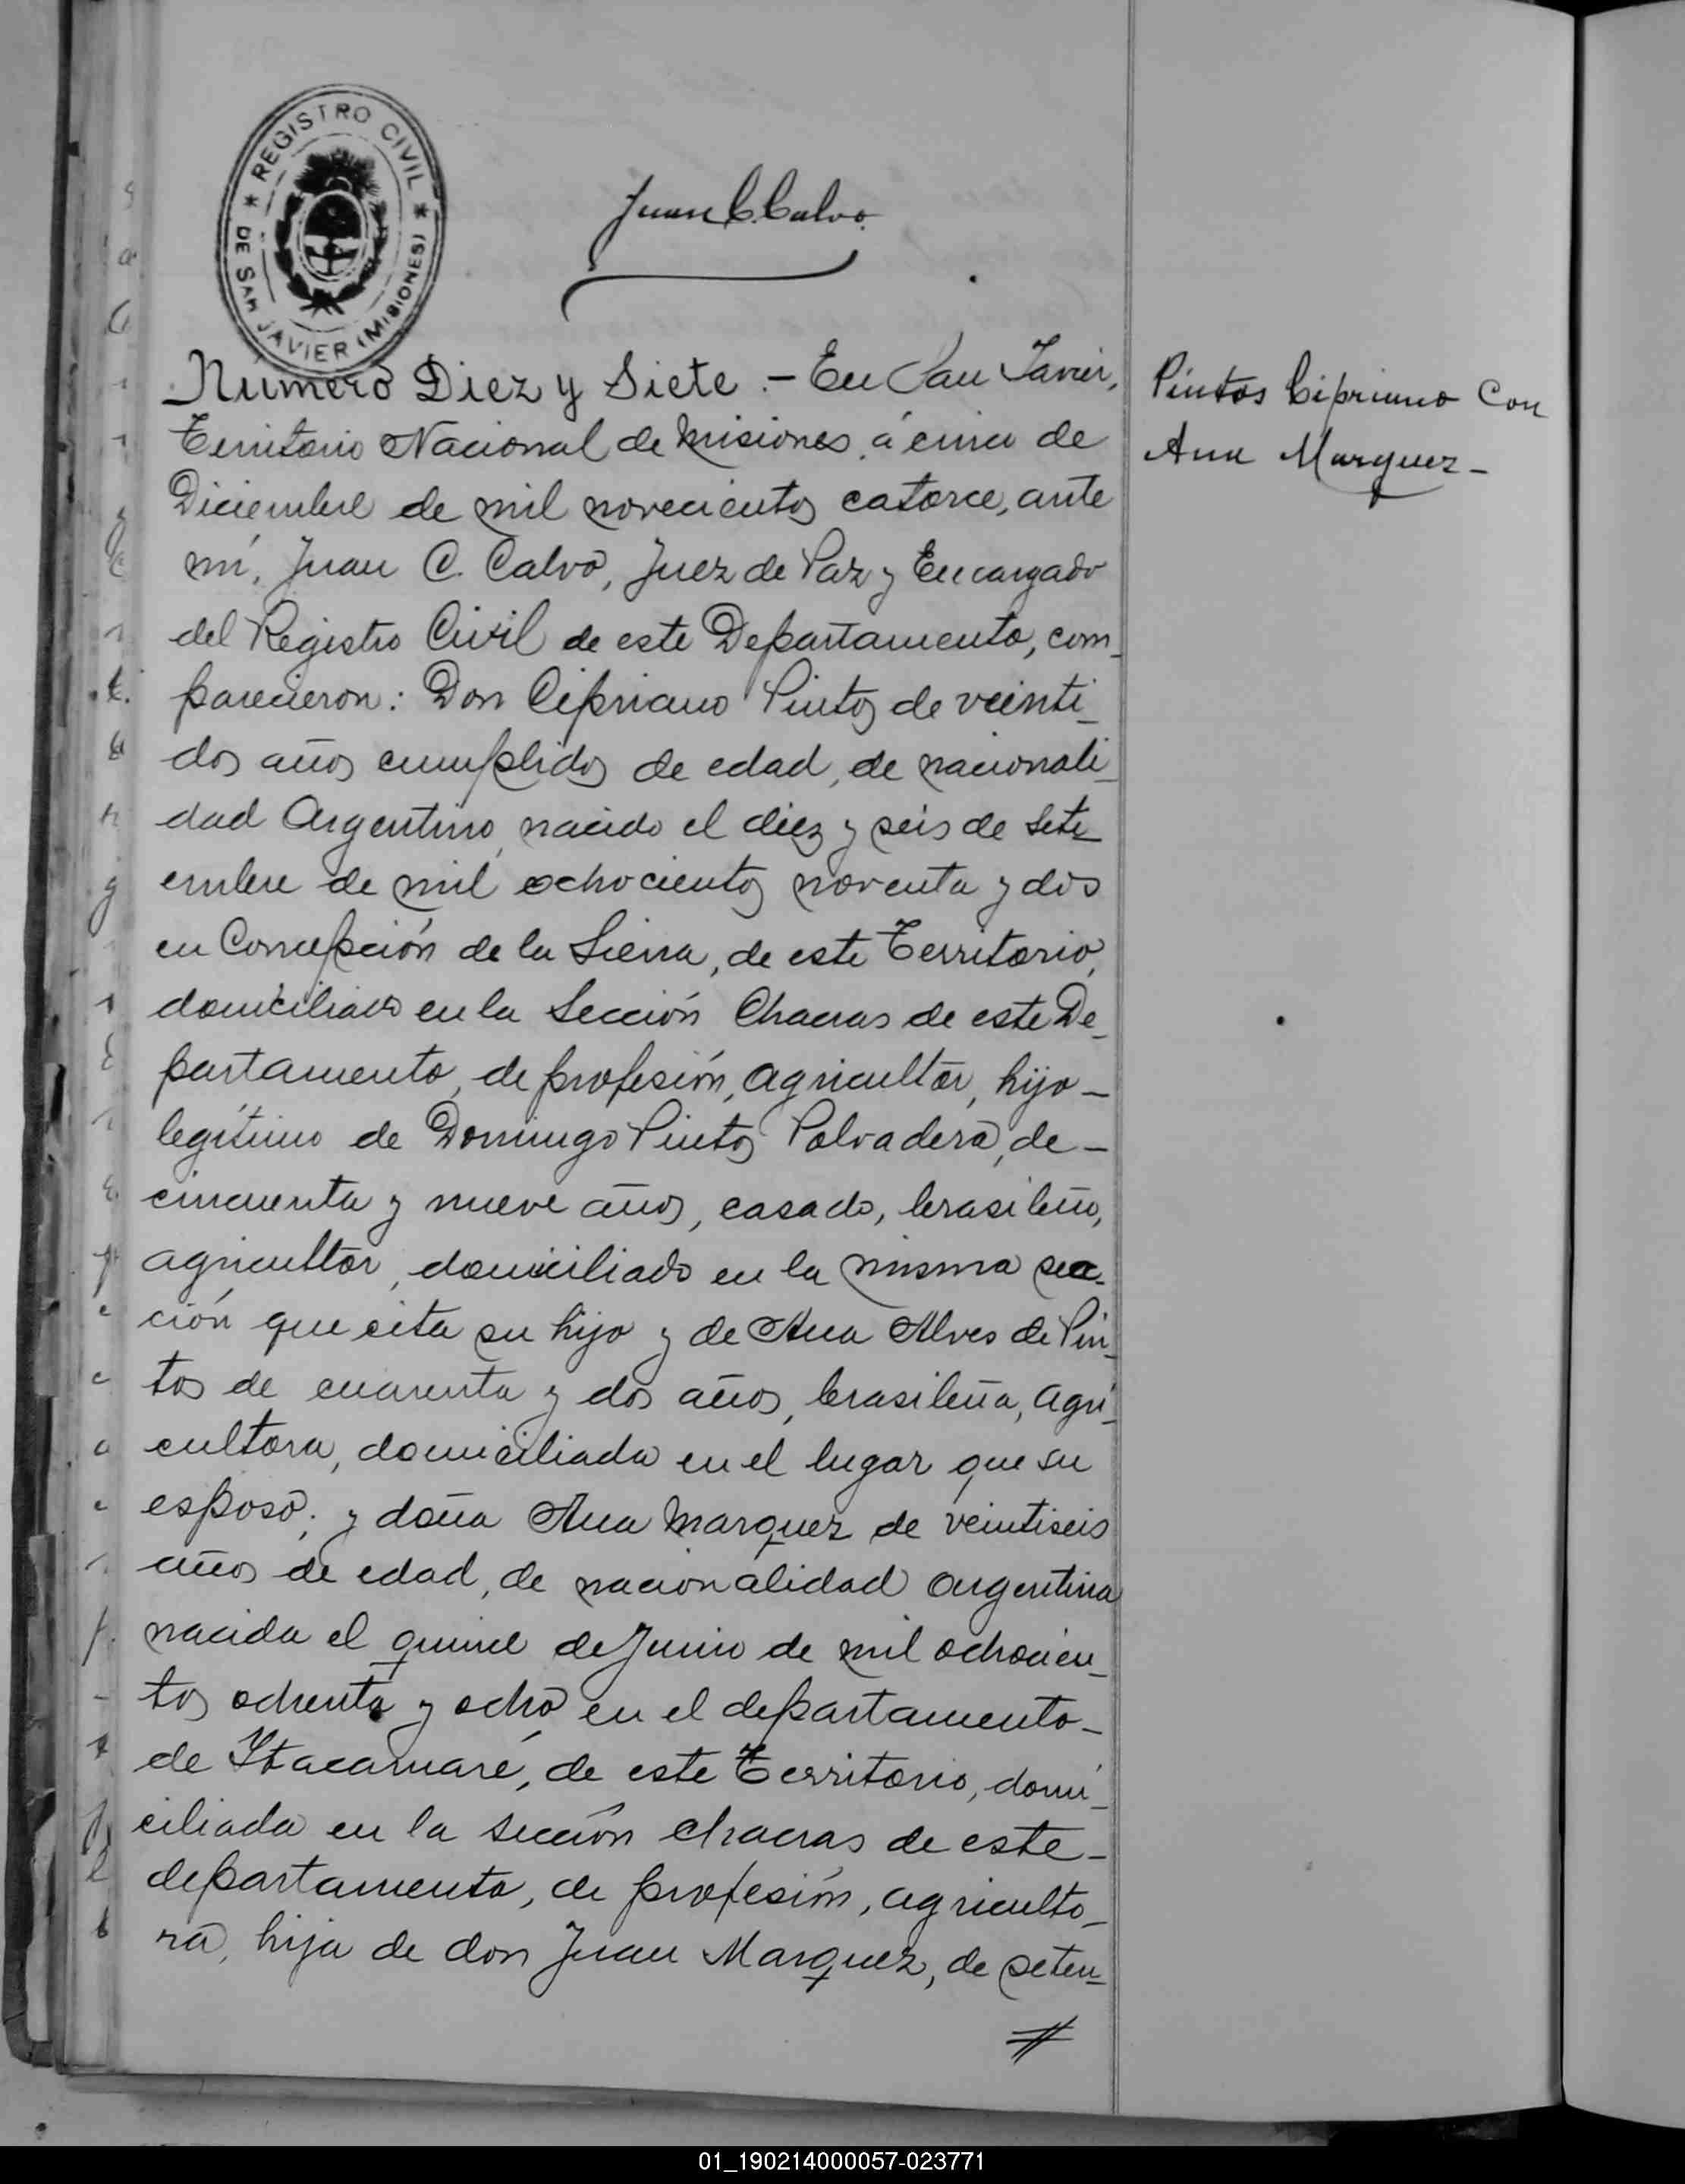 * REGISTRO CIVIL *
DE SAN JAVIER (MISIONES)
Juan C. Calvo.
Número Diez y Siete.- En San Javier,
Pintos Cipriano con
Territorio Nacional de Misiones, á cinco de
Ana Marquez-
Diciembre de mil novecientos catorce, ante
mí, Juan C. Calvo, Juez de Paz y Encargado
del Registro Civil de este Departamento, com-
parecieron: Don Cipriano Pintos de veinti-
dos años cumplidos de edad, de nacionali-
dad Argentino, nacido el diez y seis de Seti-
embre de mil ochocientos noventa y dos
en Concepción de la Sierra, de este Territorio,
domiciliado en la Sección Chacras de este De-
partamento, de profesión, agricultor, hijo-
legítimo de Domingo Pintos Polvadera, de-
cincuenta y nueve años, casado, brasileño,
agricultor, domiciliado en la misma sec-
ción que cita su hijo y de Ana Alves de Pin-
tos de cuarenta y dos años, brasileña, agri-
cultora, domiciliada en el lugar que su
esposo; y doña Ana Marquez de veintiseis
años de edad, de nacionalidad argentina
nacida el quince de Junio de mil ochocien-
tos ochenta y ocho en el departamento-
de Itacaruaré, de este Territorio, domi-
ciliada en la sección chacras de este-
departamento, de profesión, agriculto-
ra, hija de don Juan Marquez, de seten-
01_190214000057-023771